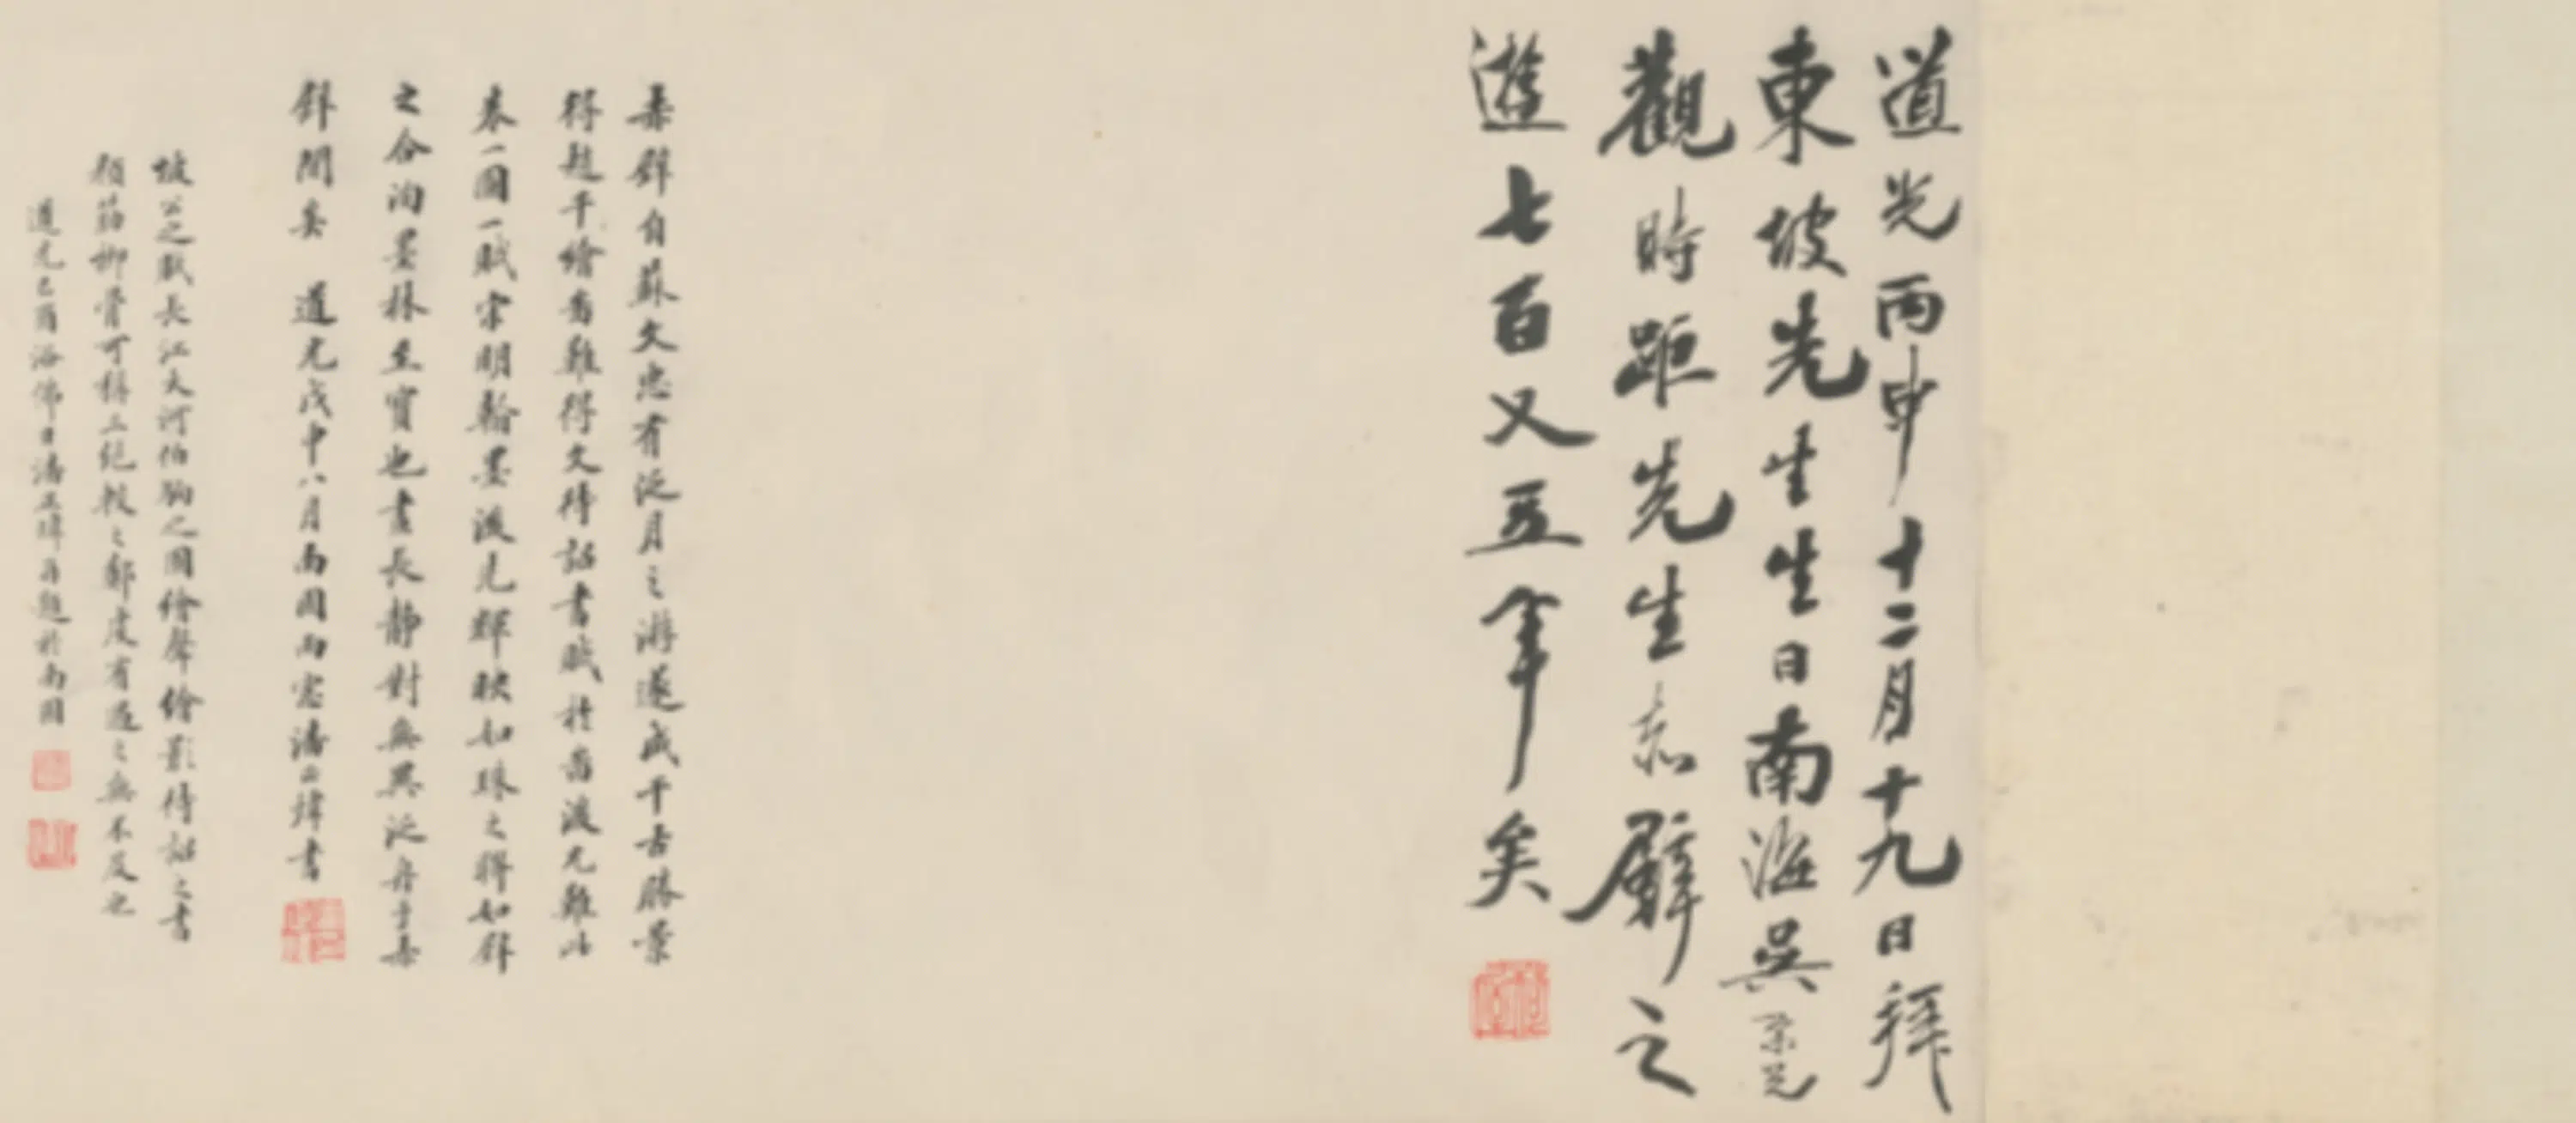 道光丙申十二月十九日拜
東坡先生生日南海吳榮光
觀時距先生赤壁之
遊七百又五年矣
赤壁自蘇文忠有泛月之游遂成千古勝景
得趙千繪者難得文待詔書賦於者後尤難此
卷一圖一賦宋明翰墨後先輝映如珠之得如璧
之合洵墨林至寶也晝長靜對無異泛舟于赤
壁間矣 道光戊申八月南園雨窓潘正煒書
坡公之賦長江大河伯駒之圖繪聲繪影待詔之書
顏筋柳骨可稱三絕 鄭虔有過之無不及也
道光己酉浴佛日潘正煒再題於南園